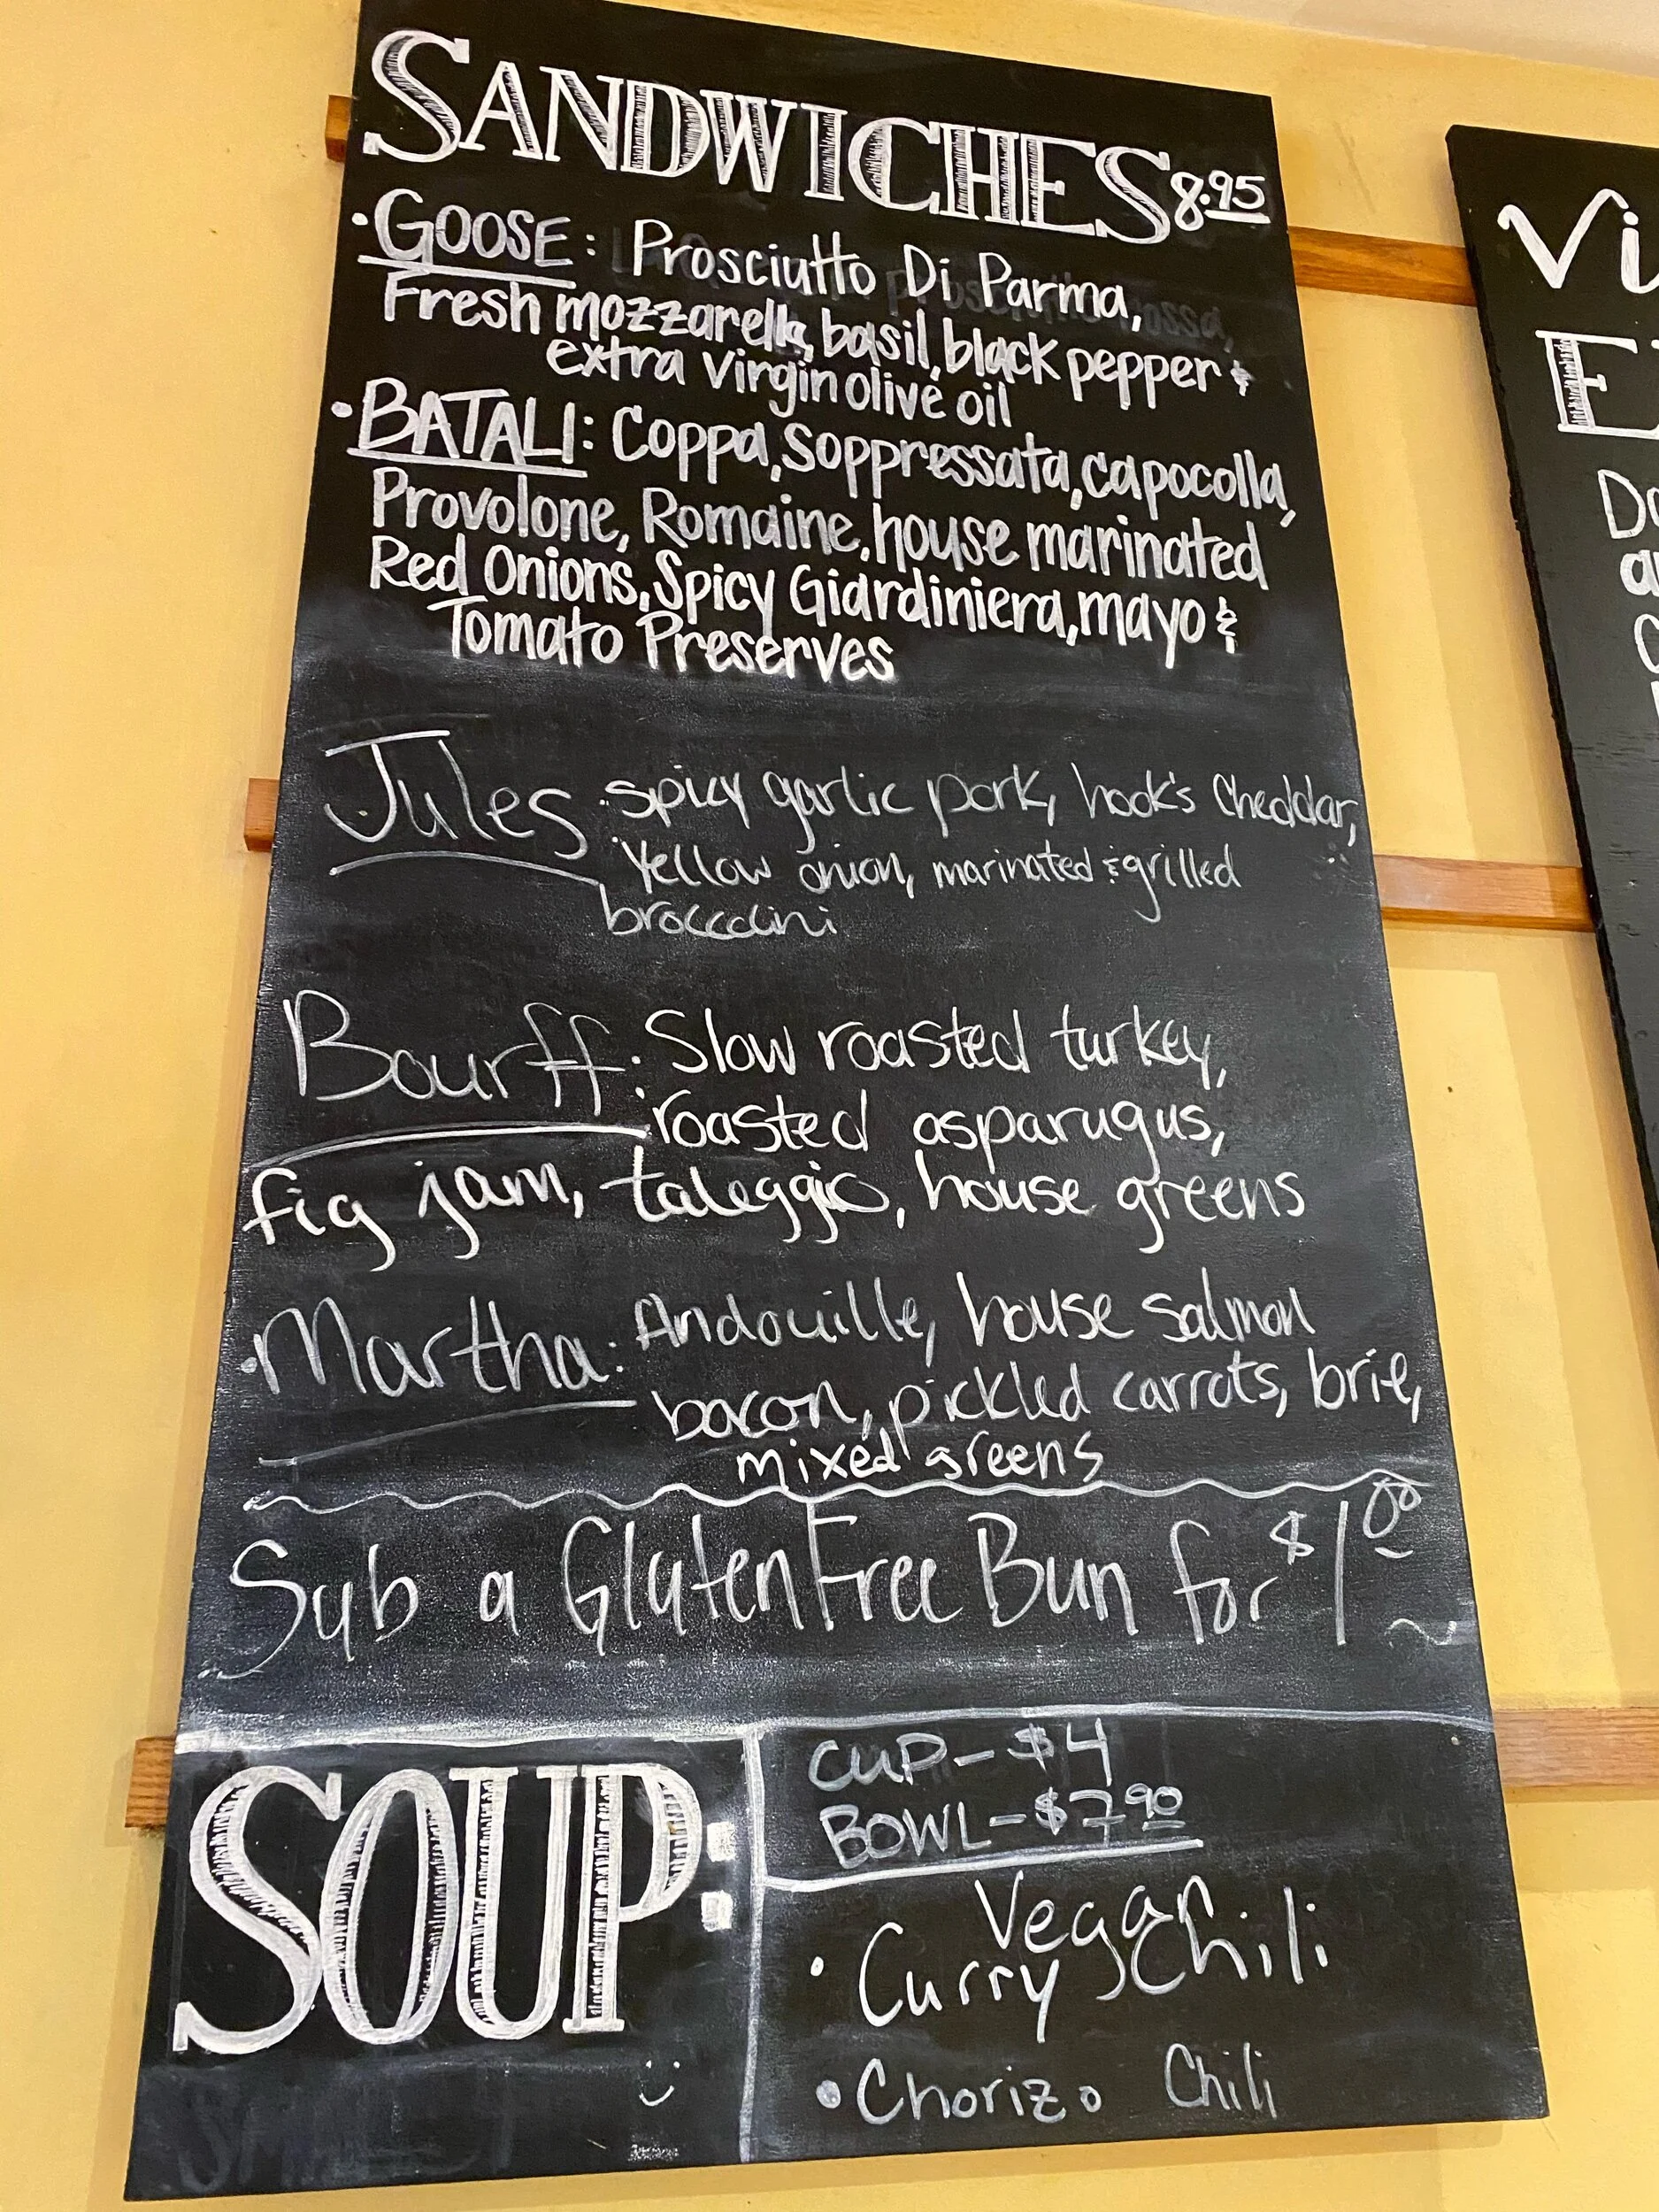 SANDWICHES 8.95
• GOOSE: Prosciutto Di Parma,
Fresh mozzarella, basil, black pepper &
extra virgin olive oil
• BATALI: Coppa, Soppressata, capocolla,
Provolone, Romaine, house marinated
Red Onions, Spicy Giardiniera, mayo &
Tomato Preserves
Jules: spicy garlic pork, hook's cheddar,
Yellow onion, marinated & grilled
broccolini
Bourff: Slow roasted turkey,
roasted asparugus,
fig jam, taleggio, house greens
• Martha: Andouille, house salmon
bacon, pickled carrots, brie,
mixed greens
Sub a Gluten Free Bun for $1.00
SOUP:
CUP - $4
BOWL - $7.90
Vegan
• Curry Chili
• Chorizo Chili
Vi
E